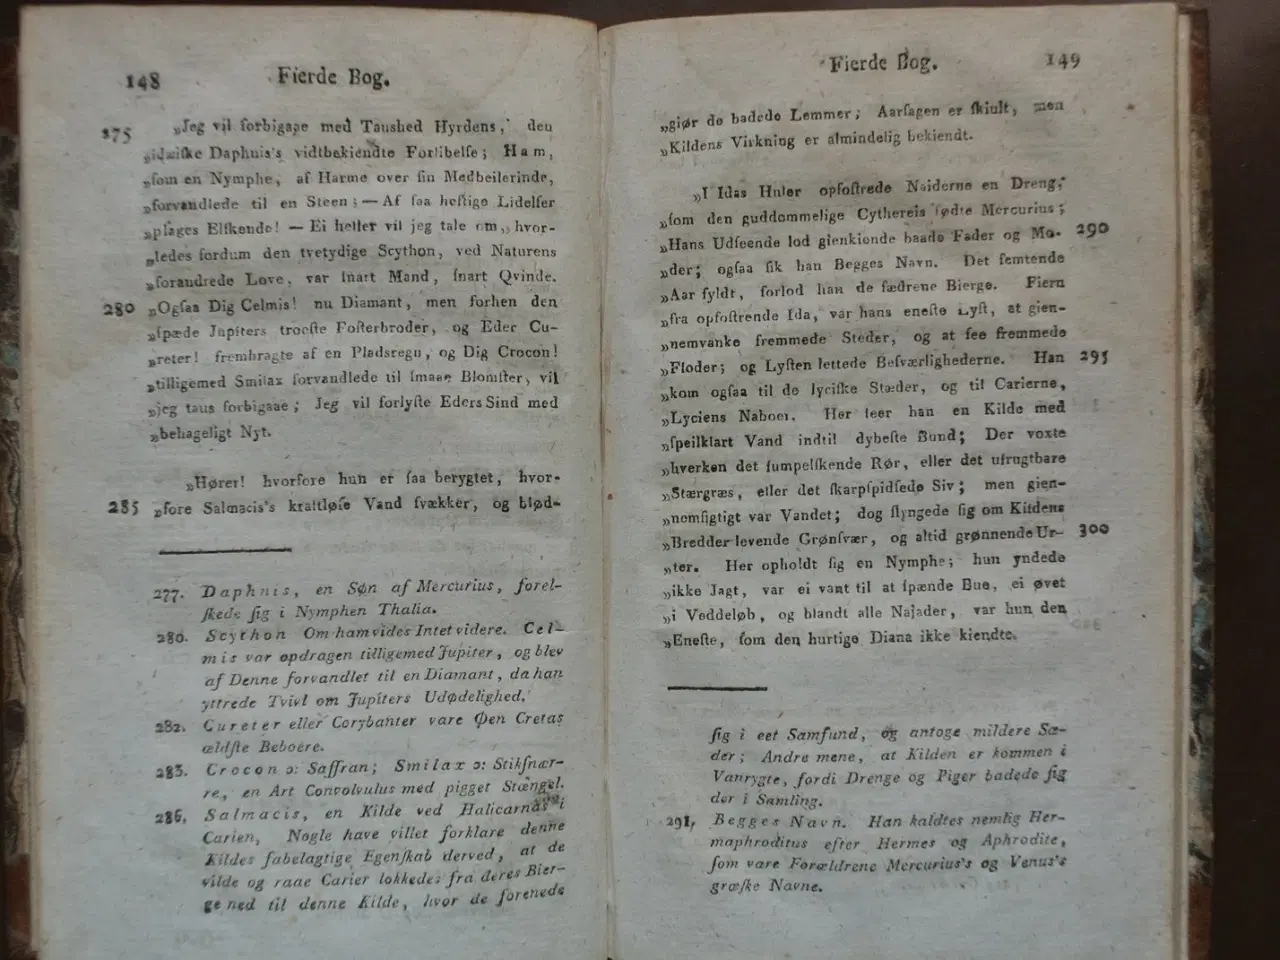 148 Fierde Bog.
275 „Jeg vil forbigaae med Taushed Hyrdens, den
„idæiſke Daphnis's vidtbekiendte Forlibelſe; Ham,
„ſom en Nymphe, af Harme over ſin Medbeilerinde,
„forvandlede til en Steen; — Af ſaa heftige Lidelſer
„plages Elſkende! — Ei heller vil jeg tale om, hvor-
„ledes fordum den tvetydige Scython, ved Naturens
„forandrede Love, var ſnart Mand, ſnart Qvinde.
280 „Ogſaa Dig Celmis! nu Diamant, men forhen den
„ſpæde Jupiters troeſte Foſterbroder, og Eder Cu-
„reter! frembragte af en Pladsregn, og Dig Crocon!
„tilligemed Smilax forvandlede til ſmaae Blomſter, vil
„jeg taus forbigaae; Jeg vil forlyſte Eders Sind med
„behageligt Nyt.
„Hører! hvorfore hun er ſaa berygtet, hvor-
285 „fore Salmacis's kraftløſe Vand ſvækker, og blød-
277. Daphnis, en Søn af Mercurius, forel-
ſkede ſig i Nymphen Thalia.
280. Scython Om ham vides Intet videre. Cel-
mis var opdragen tilligemed Jupiter, og blev
af Denne forvandlet til en Diamant, da han
yttrede Tvivl om Jupiters Udødelighed.
282. Cureter eller Corybanter vare Øen Cretas
ældſte Beboere.
283. Crocon ɔ: Saffran; Smilax ɔ: Stikſnær-
re, en Art Convolvulus med pigget Stængel.
286. Salmacis, en Kilde ved Halicarnas i
Carien, Nogle have villet forklare denne
Kildes fabelagtige Egenſkab derved, at de
vilde og raae Carier lokkedes fra deres Bier-
ge ned til denne Kilde, hvor de forenede
Fierde Bog. 149
„giør de badede Lemmer; Aarſagen er ſkiult, men
„Kildens Virkning er almindelig bekiendt.
„I Idas Huler opfoſtrede Naiderne en Dreng,
„ſom den guddommelige Cythereis fødte Mercurius;
„Hans Udſeende lod gienkiende baade Fader og Mo- 290
„der; ogſaa fik han Begges Navn. Det femtende
„Aar fyldt, forlod han de fædrene Bierge. Fiern
„fra opfoſtrende Ida, var hans eneſte Lyſt, at gien-
„nemvanke fremmede Steder, og at ſee fremmede
„Floder; og Lyſten lettede Beſværlighederne. Han 295
„kom ogſaa til de lyciſke Stæder, og til Carierne,
„Lyciens Naboer. Her ſeer han en Kilde med
„ſpeilklart Vand indtil dybeſte Bund; Der voxte
„hverken det ſumpelſkende Rør, eller det ufrugtbare
„Stærgræs, eller det ſkarpſpidſede Siv; men gien-
„nemſigtigt var Vandet; dog ſlyngede ſig om Kildens
„Bredder levende Grønſvær, og altid grønnende Ur- 300
„ter. Her opholdt ſig en Nymphe; hun yndede
„ikke Jagt, var ei vant til at ſpænde Bue, ei øvet
„i Veddeløb, og blandt alle Najader, var hun den
„Eneſte, ſom den hurtige Diana ikke kiendte.
ſig i eet Samfund, og antoge mildere Sæ-
der; Andre mene, at Kilden er kommen i
Vanrygte, fordi Drenge og Piger badede ſig
der i Samling.
291, Begges Navn. Han kaldtes nemlig Her-
maphroditus efter Hermes og Aphrodite,
ſom vare Forældrene Mercurius's og Venus's
græſke Navne.